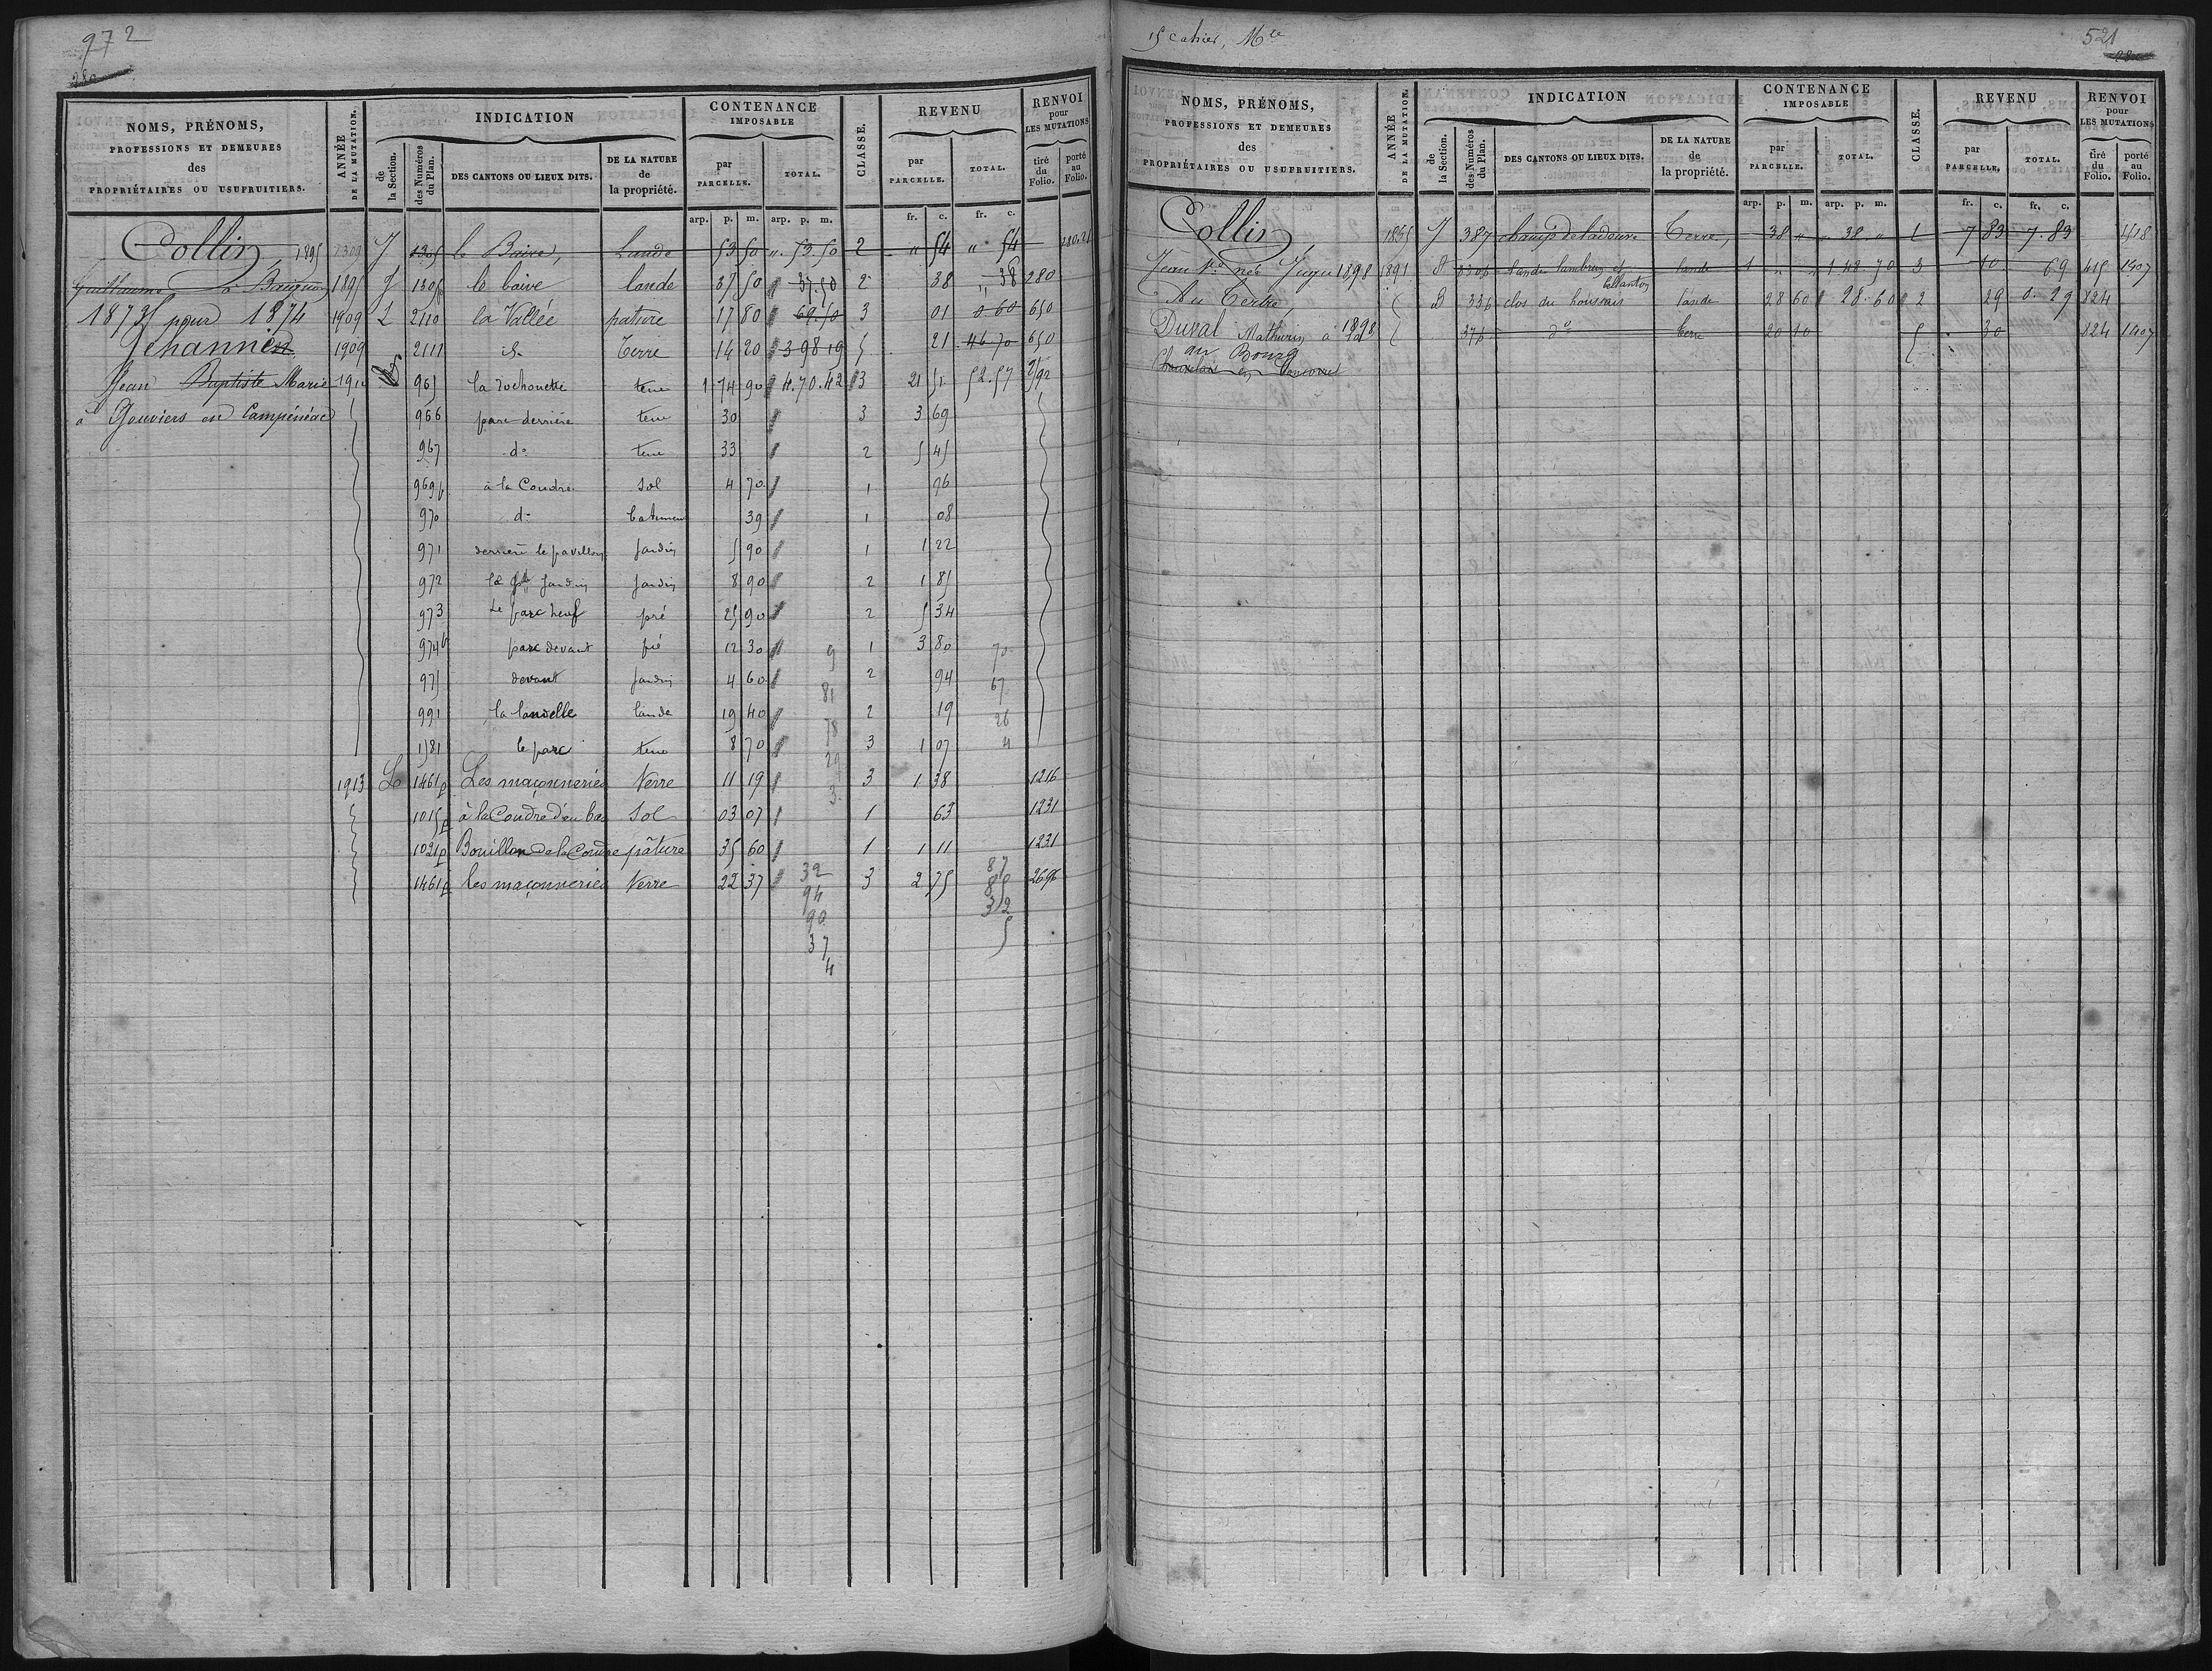 972
NOMS, PRÉNOMS,
PROFESSIONS ET DEMEURES
des
PROPRIÉTAIRES OU USUFRUITIERS.
ANNÉE
DE LA MUTATION.
INDICATION
de
la Section.
des Numéros
du Plan.
DES CANTONS OU LIEUX DITS.
DE LA NATURE
de
la propriété.
CONTENANCE
IMPOSABLE
par
PARCELLE.
TOTAL.
CLASSE.
REVENU
par
PARCELLE.
TOTAL.
RENVOI
pour
LES MUTATIONS
tiré
du
Folio.
porté
au
Folio.
arp. p. m. arp. p. m. fr. c. fr. c.
Collin, 1895 J 1305 le Baive, Lande 53 50 " 53.50 2 " 54 " 54
Guillaume à 1895 J 1305p le baive lande 37 50 37.50 2 38 " 38 280
1873 pour 1874 1909 L 2110 la Vallée pature 17 80 69.50 3 01 0 60 650
Jehannin 1909 2111 id. Terre 14 20 3 98 19 5 21 46 70 650
Jean Baptiste Marie 965 la rochouette terre 1 74 90 4.70.42 3 21 51 52.57
à Gouviers en Campénéac 966 parc derrière terre 30 3 3 69
967 do terre 33 2 5 45
969p à la Coudre Sol 4 70 1 96
970 do batiment 39 1 08
971 derrière le pavillon jardin 5 90 1 1 22
972 jardin jardin 8 90 2 1 85
973 Le parc neuf pré 25 90 2 5 34
974p parc devant pré 12 30 9 1 3 80 70
975 devant jardin 4 60 81 2 94 67
991 la landelle lande 19 40 78 2 19 26
1581 le parc terre 8 70 29 3 1 07 4
1913 L 1461p Les maçonneries Terre 11 19 3 3 1 38 1216
1015p à la Coudre d'en bas Sol 03 07 1 63 1231
1021p Bouillon de la Coudre pâture 35 60 1 1 11 1231
1461p les maçonneries Terre 22 37 32 3 2 75 87 2696
94 85
90 32
37 5
4
15 cahier, Mce
521
NOMS, PRÉNOMS,
PROFESSIONS ET DEMEURES
des
PROPRIÉTAIRES OU USUFRUITIERS.
ANNÉE
DE LA MUTATION.
INDICATION
de
la Section.
des Numéros
du Plan.
DES CANTONS OU LIEUX DITS.
DE LA NATURE
de
la propriété.
CONTENANCE
IMPOSABLE
par
PARCELLE.
TOTAL.
CLASSE.
REVENU
par
PARCELLE.
TOTAL.
RENVOI
pour
LES MUTATIONS
tiré
du
Folio.
porté
au
Folio.
arp. p. m. arp. p. m. fr. c. fr. c.
Collin, J 387 champ de ladoure Terre, 38 " " 38 " 1 7 83 7.83 1418
Jean née 1898 1891 lande lambrun et lande 1 " " 1 48 70 3 10 69 415 1407
Au Tertre B 336 clos du houssais lande 28 60 28.60 2 29 0.29 824
Duval Mathurin à 1898 376 do terre 20 10 5 30 824 1407
au Bourg
en Concoret